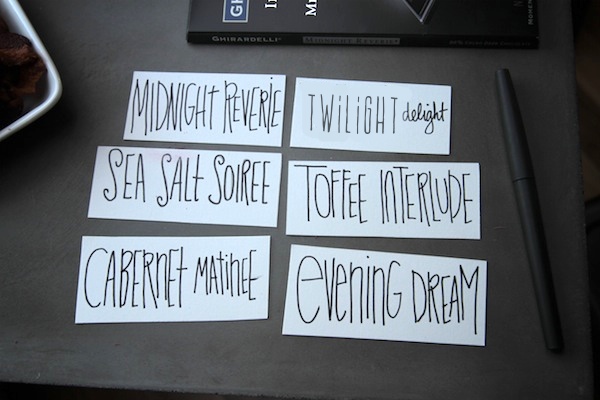 GHIRARDELLI MIDNIGHT REVERIE
MIDNIGHT REVERIE
TWILIGHT delight
SEA SALT SOIREE
TOFFEE INTERLUDE
CABERNET MATINEE
evening DREAM